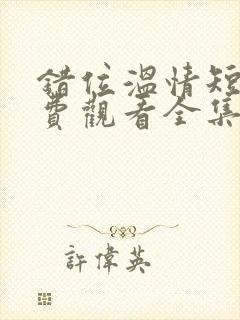 錯位溫情短
費觀看全集
許偉英